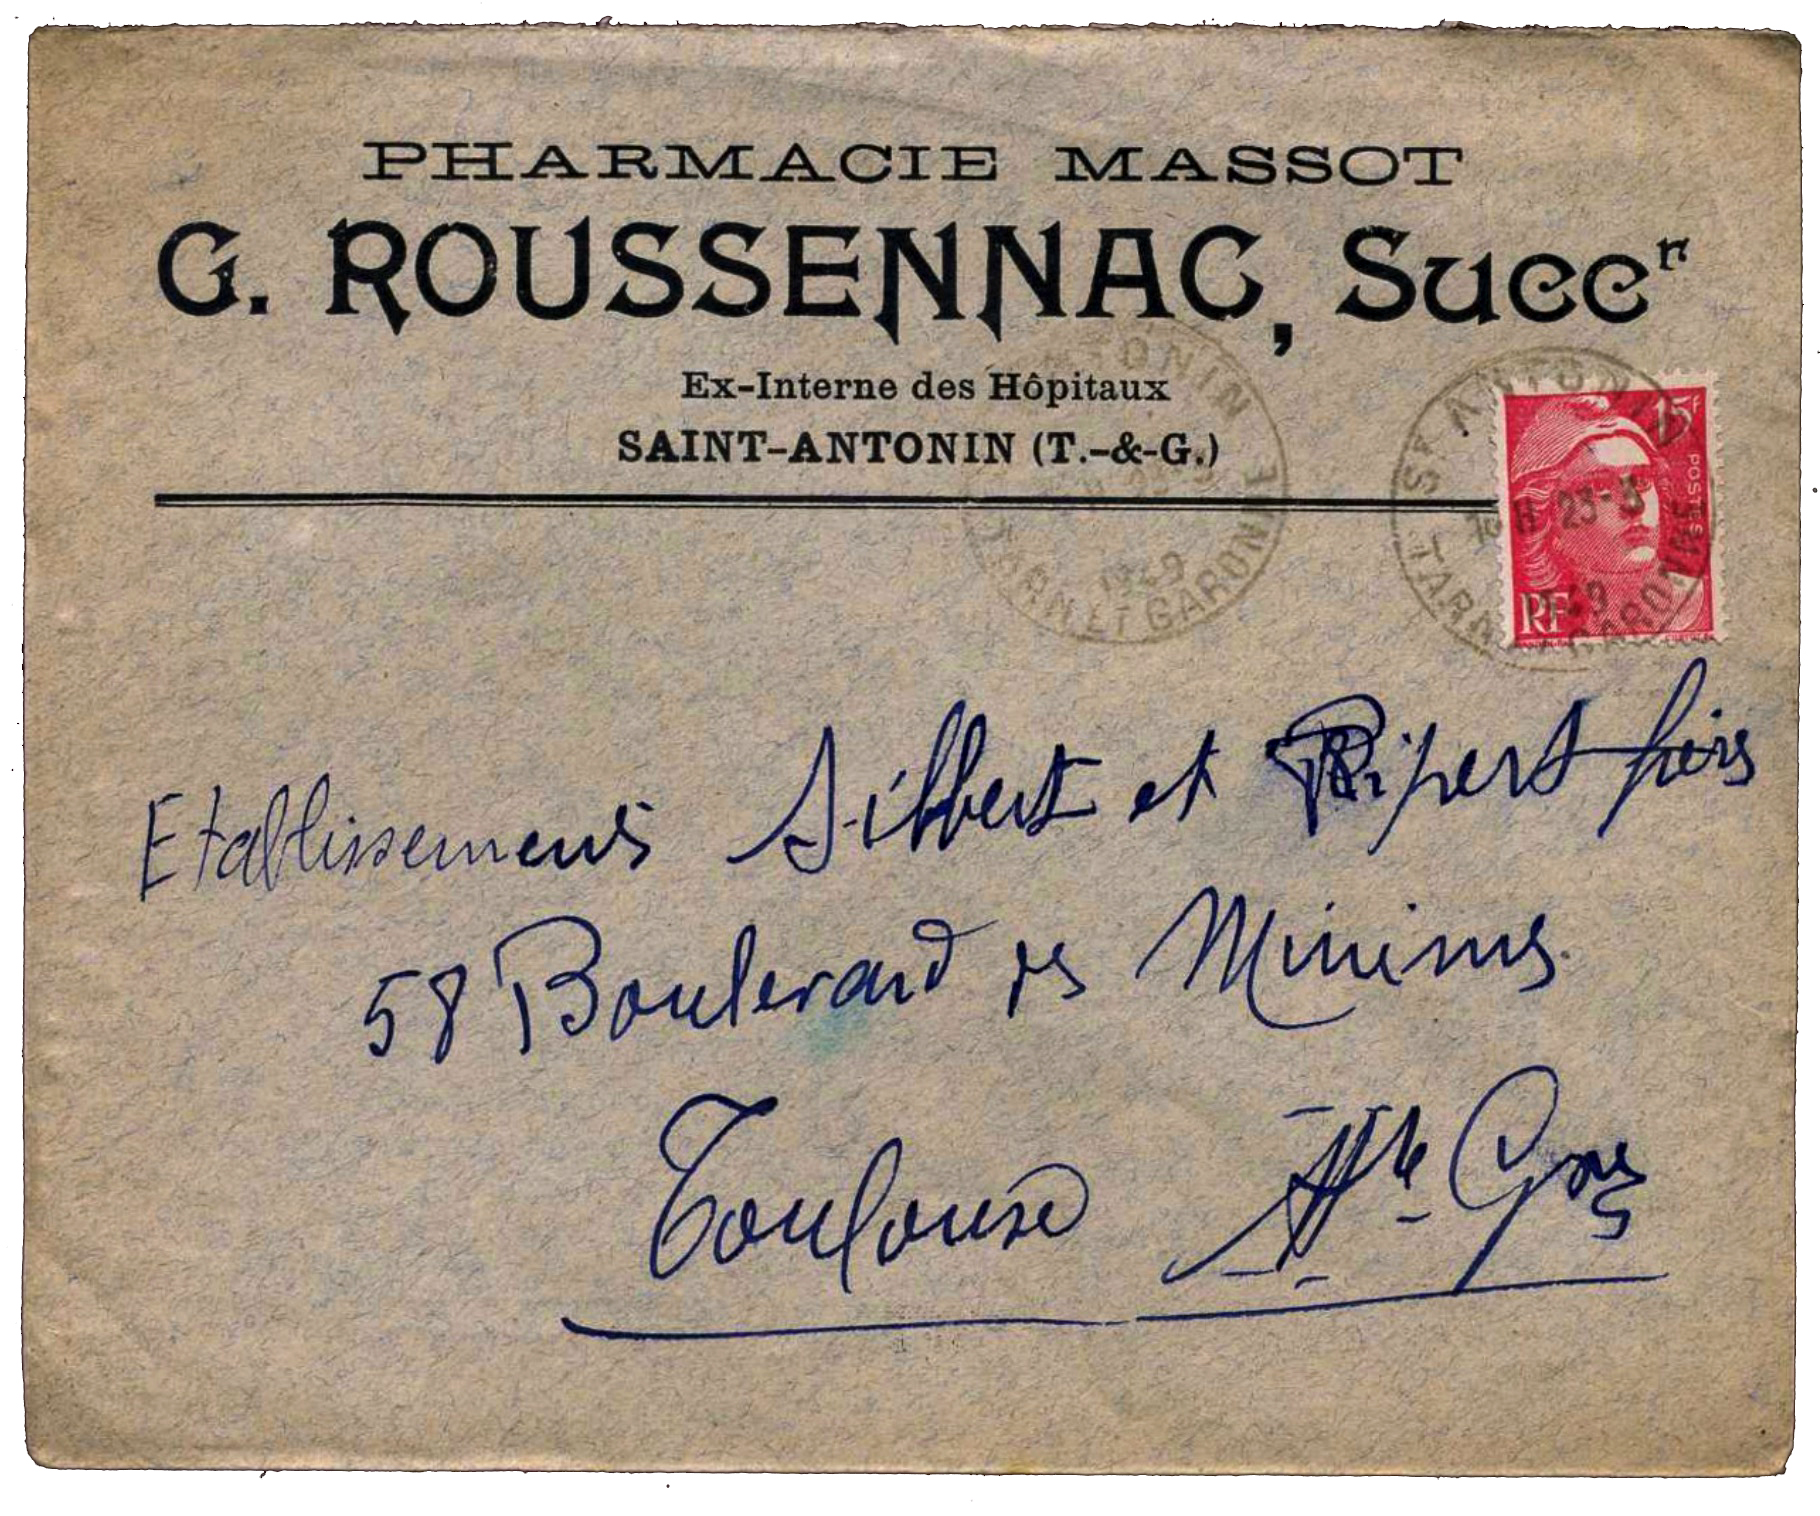 PHARMACIE MASSOT
G. ROUSSENNAC, Succr
Ex-Interne des Hôpitaux
SAINT-ANTONIN (T.-&-G.)
ANTONIN
1949
TARN ET GARONNE
15f
POSTES
RF
ST ANTONIN
18H 23-3
1949
TARN ET GARONNE
Etablissements Silbert et Ripert frères
58 Boulevard des Minimes
Toulouse Hte Gne